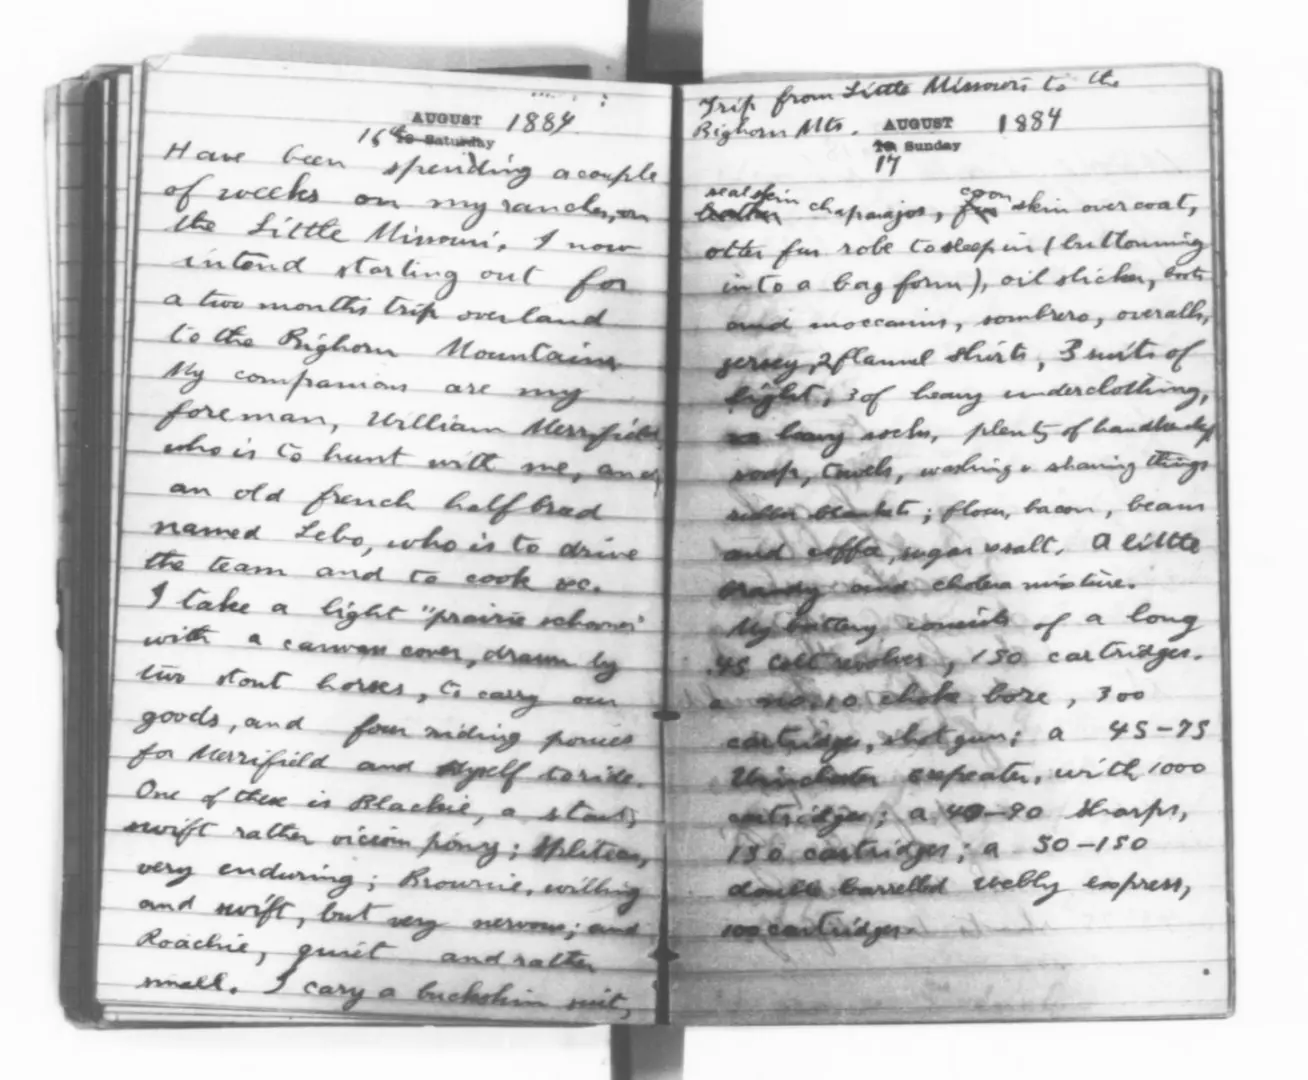 AUGUST 1884
16th Saturday
Have been spending a couple
of weeks on my ranches, on
the Little Missouri. I now
intend starting out for
a two months trip overland
to the Bighorn Mountains
My companions are my
foreman, William Merrifield
who is to hunt with me, and
an old french half bred
named Lebo, who is to drive
the team and to cook &c.
I take a light "prairie schooner"
with a canvass cover, drawn by
two stout horses, to carry our
goods, and four riding ponies
for Merrifield and myself to ride.
One of these is Blackie, a stout,
swift rather vicious pony; Splitear,
very enduring; Brownie, willing
and swift, but very nervous; and
Roachie, quiet and rather
small. I cary a buckskin suit,
Trip from Little Missouri to the
Bighorn Mts. AUGUST 1884
Sunday
17
sealskin coon
leather chaparajos, fur skin overcoat,
otter fur robe to sleep in (buttoning
into a bag form), oil slicker, boots
and moccasins, sombrero, overalls,
jersey, 2 flannel shirts, 3 suits of
light, 3 of heavy underclothing,
heavy socks, plenty of handkerchfs
soap, towels, washing & shaving things
rubber blankets; flour, bacon, beans
and coffee, sugar & salt. A little
brandy and cholera mixture.
My battery consists of a long
.45 Colt revolver, 150 cartridges.
a no. 10 choke bore, 300
cartridges, shotgun; a 45-75
Winchester repeater, with 1000
cartridges; a 40-90 Sharps,
150 cartridges; a 50-150
double barrelled Webly express,
100 cartridges.